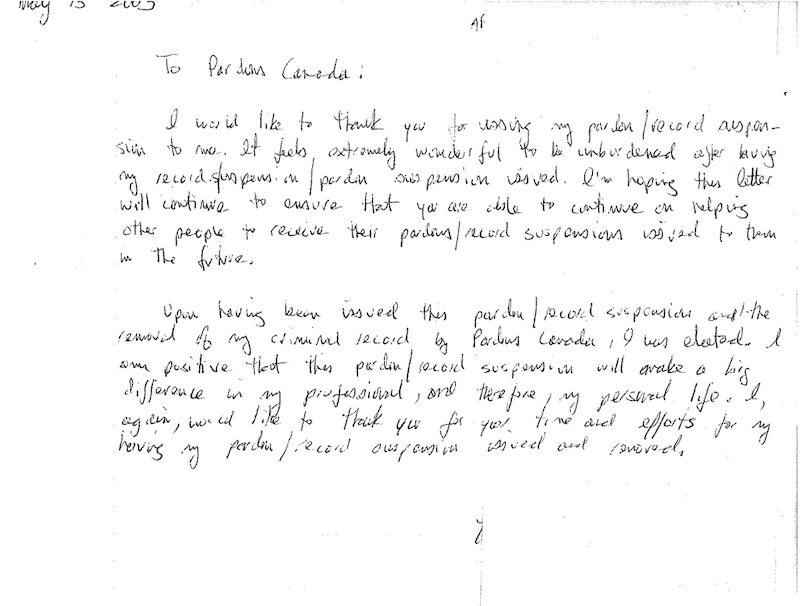 May 13 2005
To Pardons Canada:
I would like to thank you for issuing my pardon/record suspen-
sion to me. It feels extremely wonderful to be unburdened after having
my record suspension/pardon suspension issued. I'm hoping this letter
will continue to ensure that you are able to continue on helping
other people to receive their pardons/record suspensions issued to them
in the future.
Upon having been issued this pardon/record suspension and the
removal of my criminal record by Pardons Canada, I was elated. I
am positive that this pardon/record suspension will make a big
difference in my professional, and therefore, my personal life. I,
again, would like to thank you for your time and efforts for my
having my pardon/record suspension issued and removed.